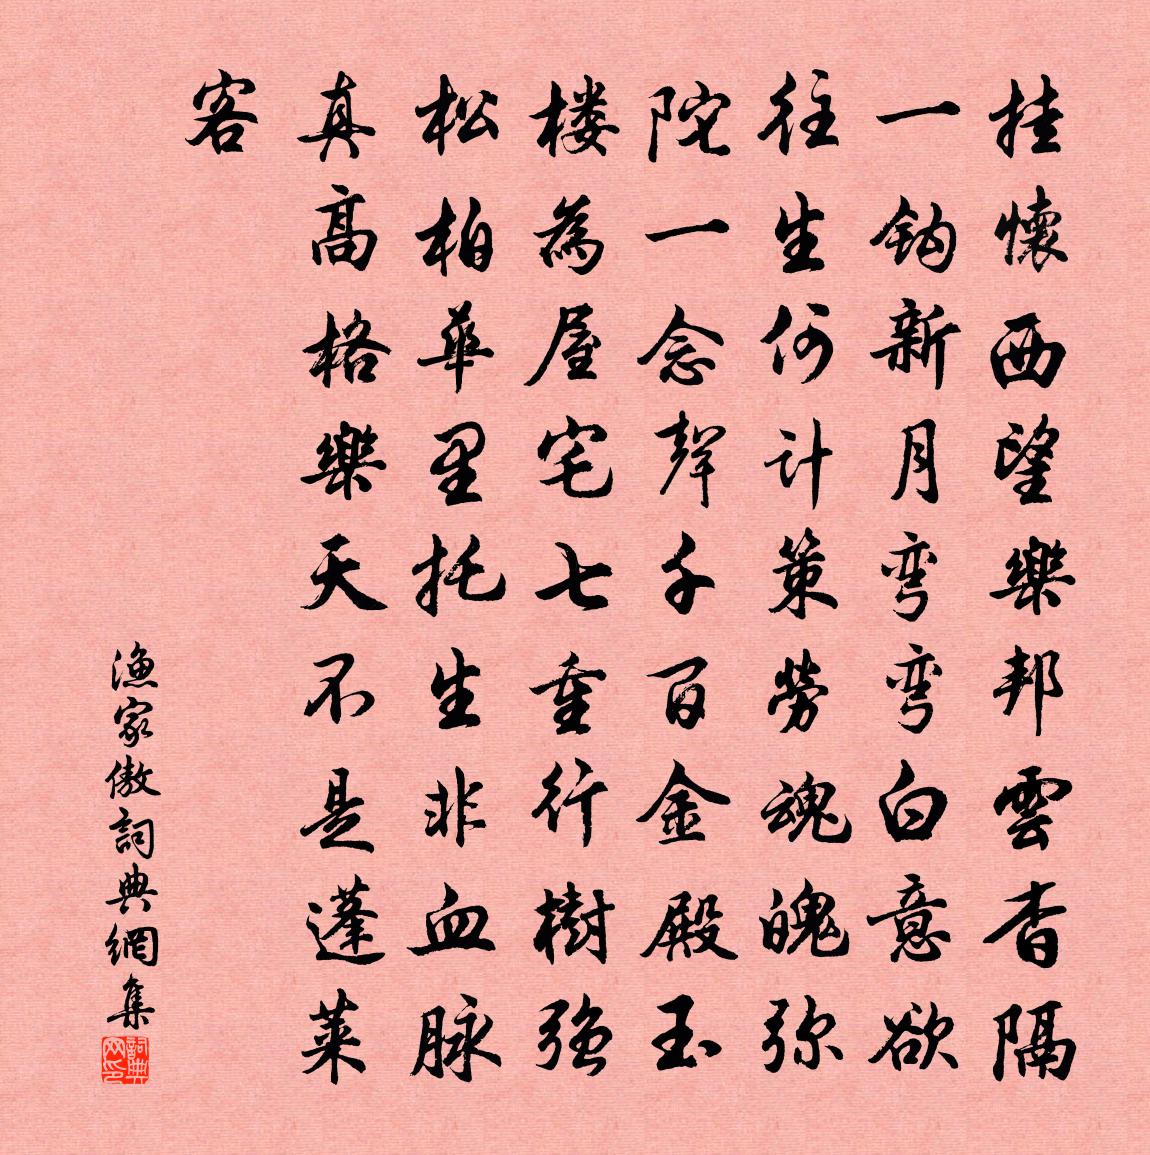 挂懷西望樂邦雲杳隔
一鈎新月弯弯白意欲
往生何计策勞魂魄弥
陀一念聲千百金殿玉
楼為屋宅七重行樹强
松柏華里托生非血脉
真高格樂天不是蓬莱
客
漁家傲詞典網集
詞典网印